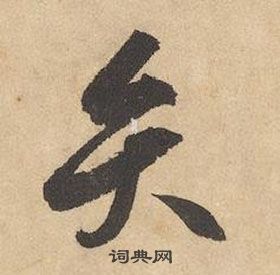 矣
词典网